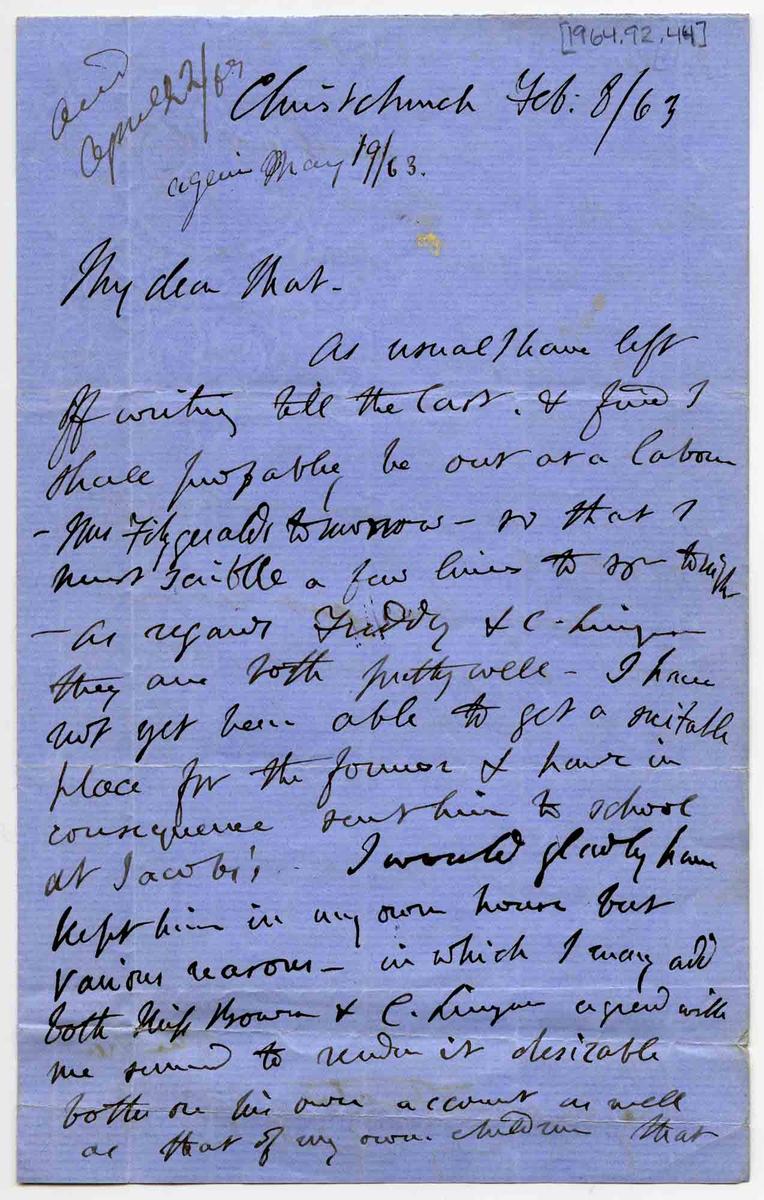 [1964.92.44]
and
April 22/63
Christchurch Feb: 8/63
again May 19/63.
My dear
As usual I have left
off writing till the last. & find I
shall probably be out at a
- Mrs Fitzgerald's tomorrow - so that I
must scribble a few lines to you tonight
- As regards Freddy & C.
they are both pretty well - I have
not yet been able to get a suitable
place for the former & have in
consequence sent him to school
at Jacobs's. I would gladly have
kept him in my own house but
various reasons - in which I may add
both Miss & C. agreed with
me seemed to render it desirable
both on his own account as well
as that of my own children that